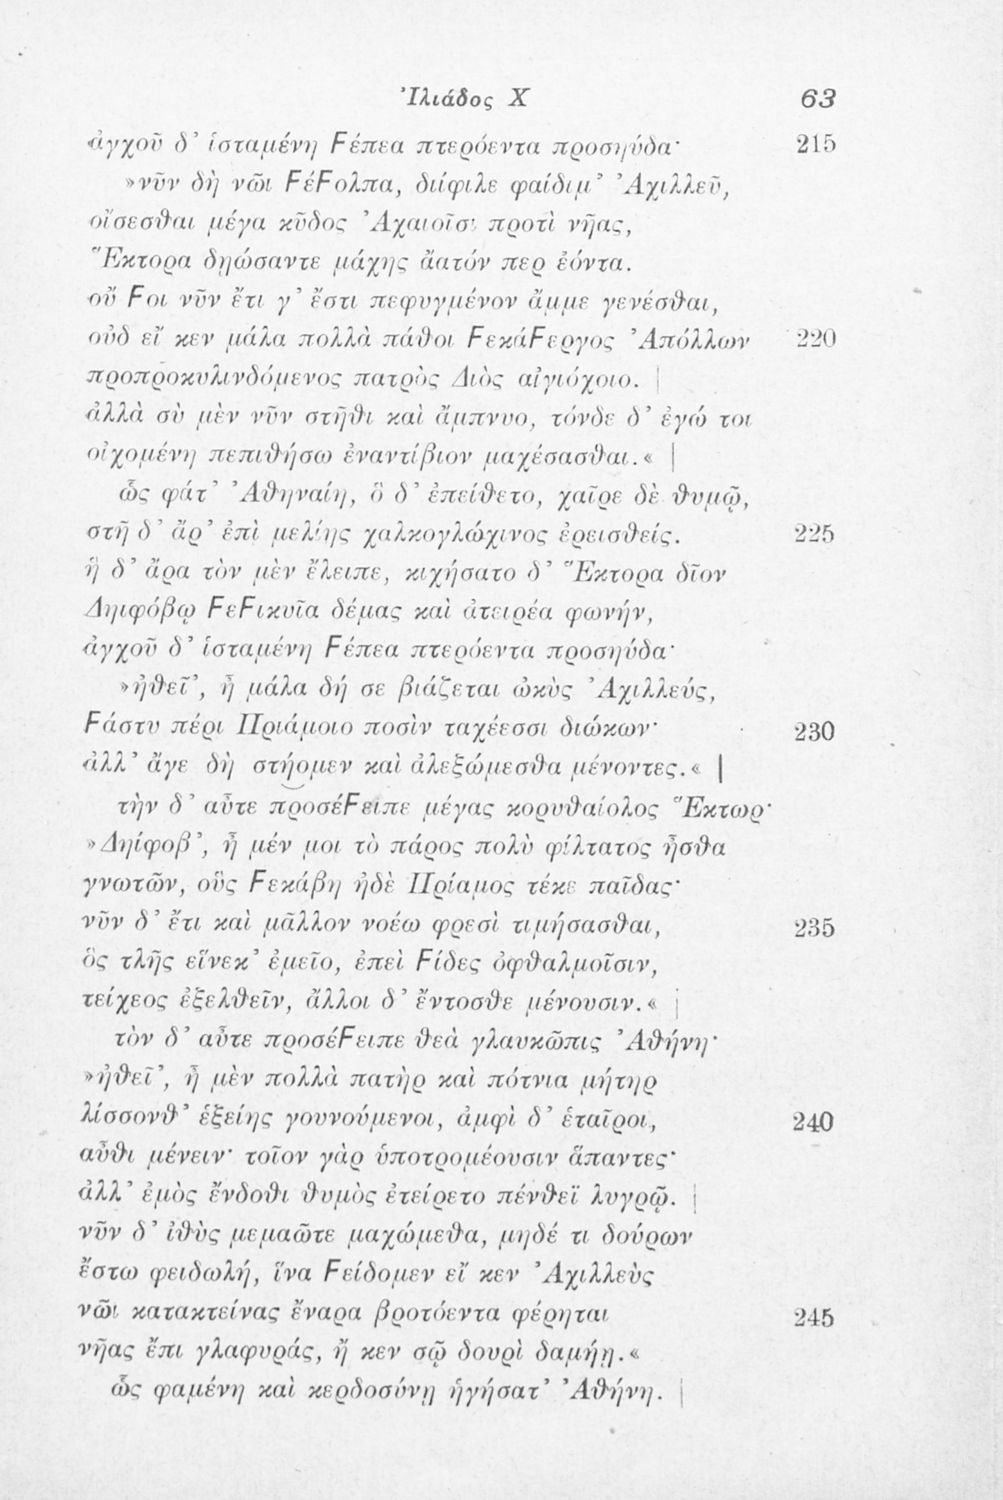 Ἰλιάδος Χ 63
ἀγχοῦ δ’ ἱσταμένη Ϝέπεα πτερόεντα προσηύδα· 215
»νῦν δὴ νῶι ϜέϜολπα, διίφιλε φαίδιμ’ Ἀχιλλεῦ,
οἴσεσθαι μέγα κῦδος Ἀχαιοῖσι προτὶ νῆας,
Ἕκτορα δῃώσαντε μάχης ἄατόν περ ἐόντα.
οὔ Ϝοι νῦν ἔτι γ’ ἔστι πεφυγμένον ἄμμε γενέσθαι,
οὐδ εἴ κεν μάλα πολλὰ πάθοι ϜεκάϜεργος Ἀπόλλων 220
προπροκυλινδόμενος πατρὸς Διὸς αἰγιόχοιο. |
ἀλλὰ σὺ μὲν νῦν στῆθι καὶ ἄμπνυο, τόνδε δ’ ἐγώ τοι
οἰχομένη πεπιθήσω ἐναντίβιον μαχέσασθαι.« |
ὣς φάτ’ Ἀθηναίη, ὃ δ’ ἐπείθετο, χαῖρε δὲ θυμῷ,
στῆ δ’ ἄρ’ ἐπὶ μελίης χαλκογλώχινος ἐρεισθείς. 225
ἣ δ’ ἄρα τὸν μὲν ἔλειπε, κιχήσατο δ’ Ἕκτορα δῖον
Δηιφόβῳ ϜεϜικυῖα δέμας καὶ ἀτειρέα φωνήν,
ἀγχοῦ δ’ ἱσταμένη Ϝέπεα πτερόεντα προσηύδα·
»ἠθεῖ’, ἦ μάλα δή σε βιάζεται ὠκὺς Ἀχιλλεύς,
Ϝάστυ πέρι Πριάμοιο ποσὶν ταχέεσσι διώκων· 230
ἀλλ’ ἄγε δὴ στήομεν καὶ ἀλεξώμεσθα μένοντες.« |
τὴν δ’ αὖτε προσέϜειπε μέγας κορυθαίολος Ἕκτωρ·
»Δηίφοβ’, ἦ μέν μοι τὸ πάρος πολὺ φίλτατος ἦσθα
γνωτῶν, οὓς Ϝεκάβη ἠδὲ Πρίαμος τέκε παῖδας·
νῦν δ’ ἔτι καὶ μᾶλλον νοέω φρεσὶ τιμήσασθαι, 235
ὃς τλῆς εἵνεκ’ ἐμεῖο, ἐπεὶ Ϝίδες ὀφθαλμοῖσιν,
τείχεος ἐξελθεῖν, ἄλλοι δ’ ἔντοσθε μένουσιν.« |
τὸν δ’ αὖτε προσέϜειπε θεὰ γλαυκῶπις Ἀθήνη·
»ἠθεῖ’, ἦ μὲν πολλὰ πατὴρ καὶ πότνια μήτηρ
λίσσονθ’ ἑξείης γουνούμενοι, ἀμφὶ δ’ ἑταῖροι, 240
αὖθι μένειν· τοῖον γὰρ ὑποτρομέουσιν ἅπαντες·
ἀλλ’ ἐμὸς ἔνδοθι θυμὸς ἐτείρετο πένθεϊ λυγρῷ. |
νῦν δ’ ἰθὺς μεμαῶτε μαχώμεθα, μηδέ τι δούρων
ἔστω φειδωλή, ἵνα Ϝείδομεν εἴ κεν Ἀχιλλεὺς
νῶι κατακτείνας ἔναρα βροτόεντα φέρηται 245
νῆας ἔπι γλαφυράς, ἤ κεν σῷ δουρὶ δαμήῃ.«
ὣς φαμένη καὶ κερδοσύνῃ ἡγήσατ’ Ἀθήνη. |